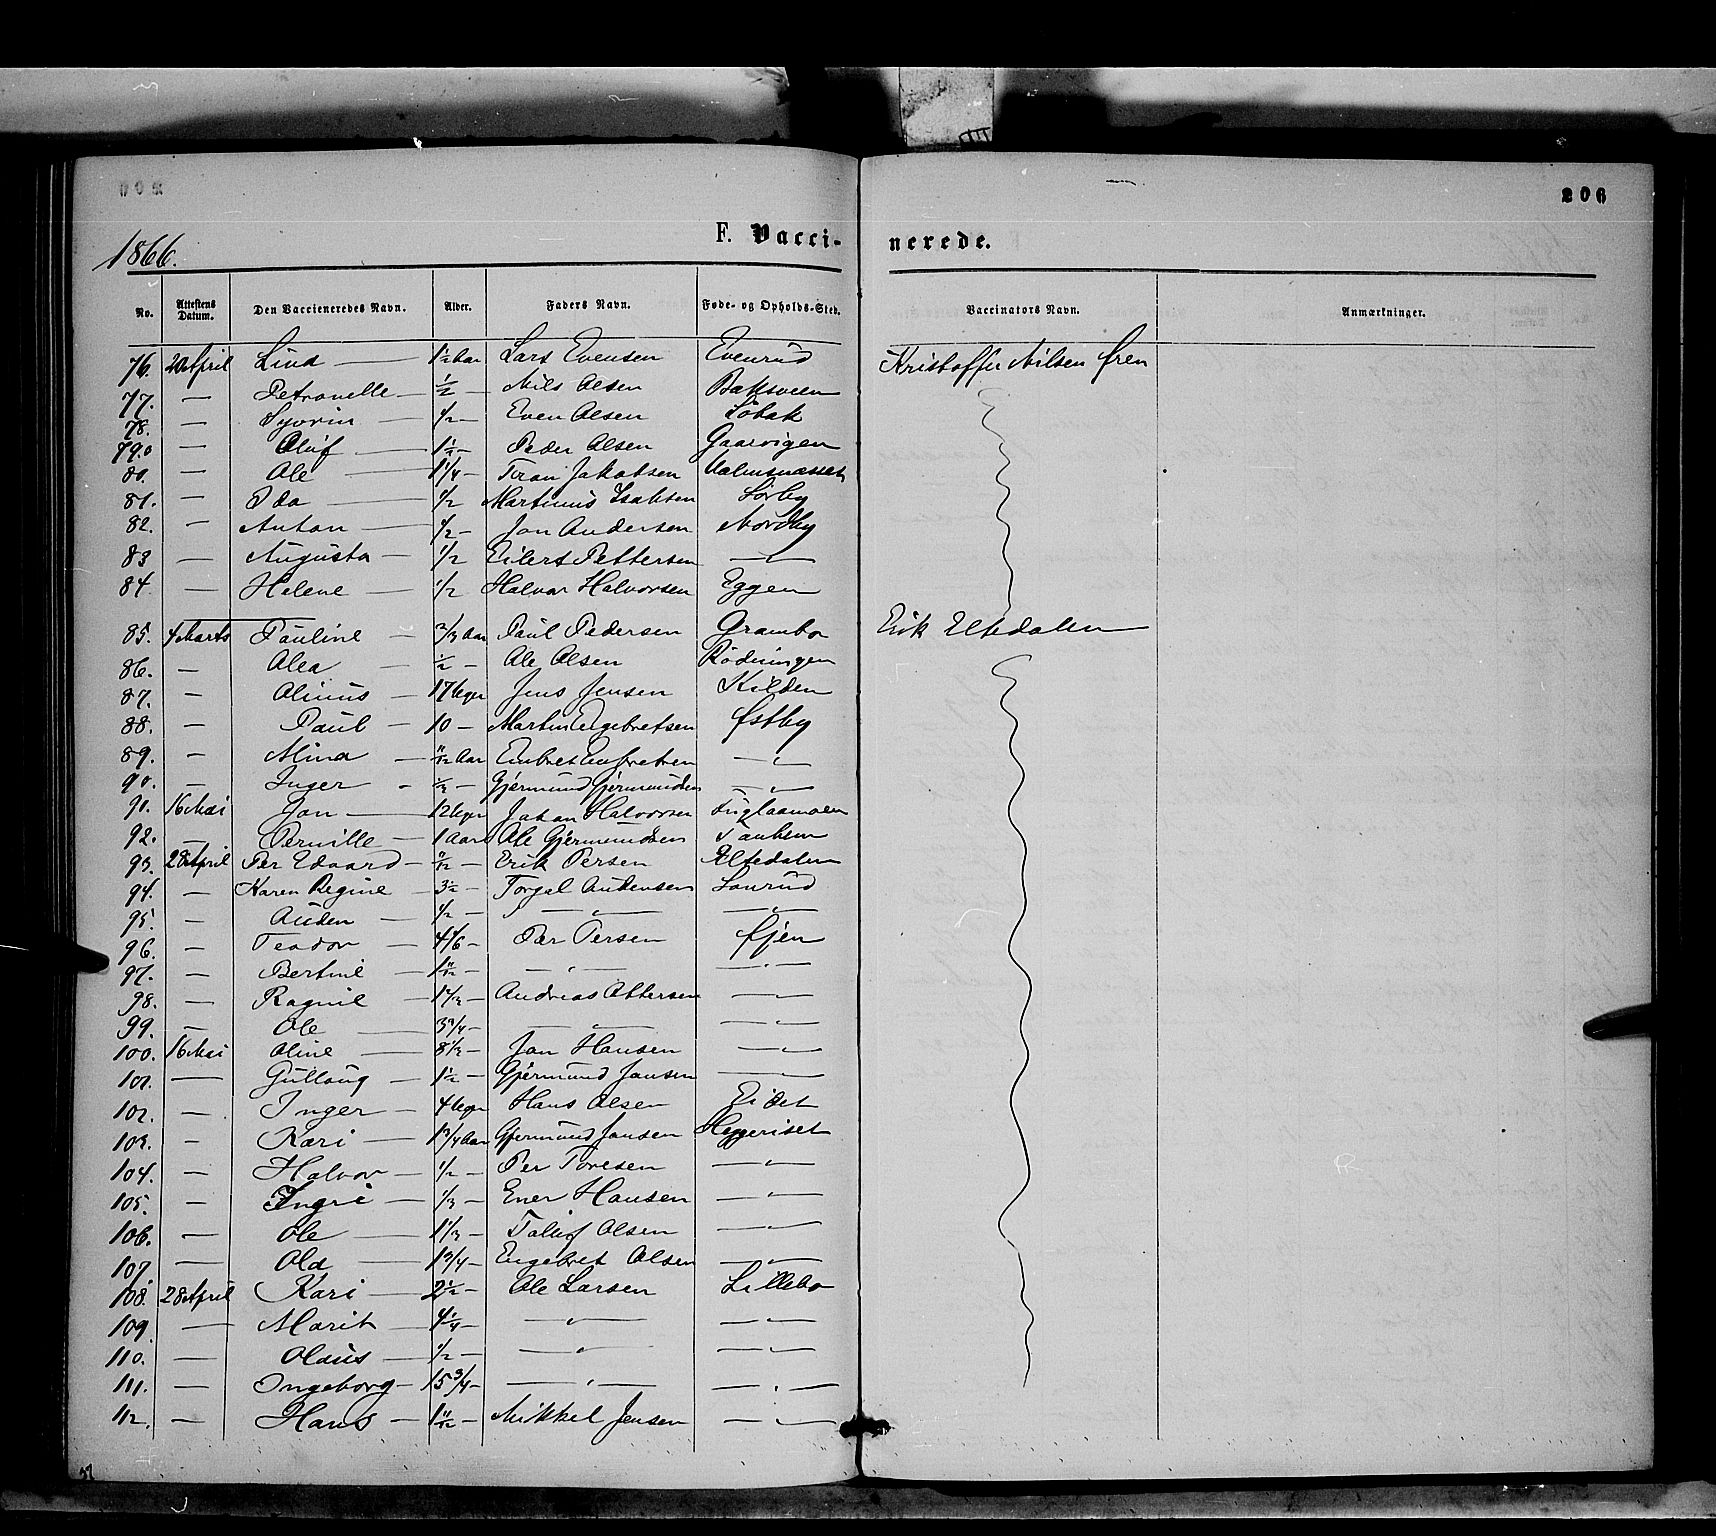 206
1866.
F. Vacci- nerede.
No. Attestens Datum. Den Vaccieneredes Navn. Alder. Faders Navn. Føde- og Opholds-Sted. Vaccinators Navn. Anmærkninger.
76. 20 April Lina — 1½ Aar Lars Evensen Evenrud Kristoffer Nilsen
77. — Petronelle — ½ — Nils Olsen Bakkeveen
78. — Syvrin — ½ — Even Olsen Löbak
79. — Oluf — 1½ — Peder Olsen Gaarvigen
80. — Ole — 1¼ — Jakobsen
81. — Ida — ½ Martinus Isaksen Sørby
82. — Anton — ½ — Jon Andersen Nordby
83 — Augusta — ½ Eilert Pettersen — " —
84. — Helene — ½ Halvor Halvorsen Eggen
85. 4 Marts Pauline — 2/3 Aar Paul Pedersen Grambo Erik Eltedalen
86. — Olea — ½ — Ole Olsen Rödningen
87. — — 17 Uger Jens Jensen Kilden
88. — Paul — 10 — Martin Engebretsen Østby
89. — Mina — 11/12 Aar — " —
90. — Inger — ½ — Gjermund Gjermundsen — " —
91. 16 Mai Jon — 12 Uger Johan Halvorsen Fuglaamoen
92. — Pernille — 1 Aar Ole Gjermundsen
93. 28 April Per Edvard — 11/12 — Erik Persen Eltedalen
94. — Karen Regine 3½ — Torgal Audensen
95. — Auden — ½ — — " — — " —
96. — Teodor — 4 1/6 — Per Persen
97. — Bertine — 1 11/12 — — " — — " —
98. — Ragnil — 1 2/3 — Andreas Ottersen — " —
99. — Ole — 3¾ — — " — — " —
100. 16 Mai Oline — 8 1/3 — Jon Hansen — " —
101. — Gullaug — 1½ — Gjermund Jonsen — " —
102. — Inger — 4 Uger Hans Olsen Eidet
103. — Kari — 1¾ Aar Gjermund Jonsen Heggeriset
104. — Halvor — ½ — Per Toresen — " —
105. — Ingri — 1/3 — Ener Hansen — " —
106. — Ole — 1 1/3 — Tollef Olsen — " —
107. — Ola — 1¾ — Engebret Olsen — " —
108. 28 April Kari — 2½ — Ole Larsen Lillebo
109. — Marit — 4¼ — — " — — " —
110. — Olaus — ½ — — " — — " —
111. — Ingeborg — 15¾ — — " — — " —
112. — Hans — 1 11/12 — Mikkel Jensen — " —